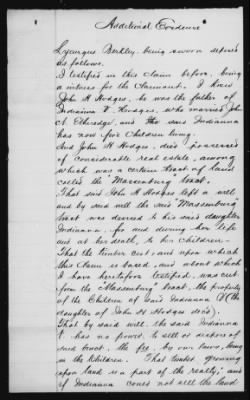 Additional Evidence
Lycurgus Berkley, being sworn deposes
as follows.
I testified in this claim before, being
a witness for the Claimant. I knew
John H Hodges, he was the father of
Indianna V Hodges, who married John
A. Etheredge, and the said Indianna
has now five Children living.
Said John H Hodges, died possessed
of considerable real estate, among
which was a certain tract of land
called the "Massenburg" tract.
That said John H Hodges left a will
and by said will the said "Massenburg"
tract was devised to his said daughter
Indianna, for and during her life
and at her death, to her children.
That the timber cut and upon which
this claim is based, and about which
I have heretofore testified, was cut
from the "Massenburg" tract, the property
of the Children of said Indianna V (the
daughter of John H Hodges decd).
That by said will, the said Indianna
V. has no power to sell or dispose of
said tract, the fee, by our laws, being
in the children. That timber growing
upon land is a part of the realty; and
if Indianna could not sell the land